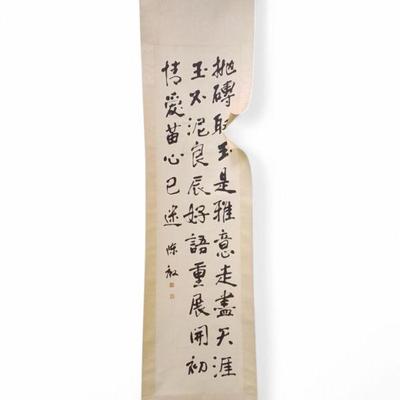 拋磚取玉是雅意走盡天涯
玉不泥良辰好語重展開初
情愛苗心已迷 陳敬